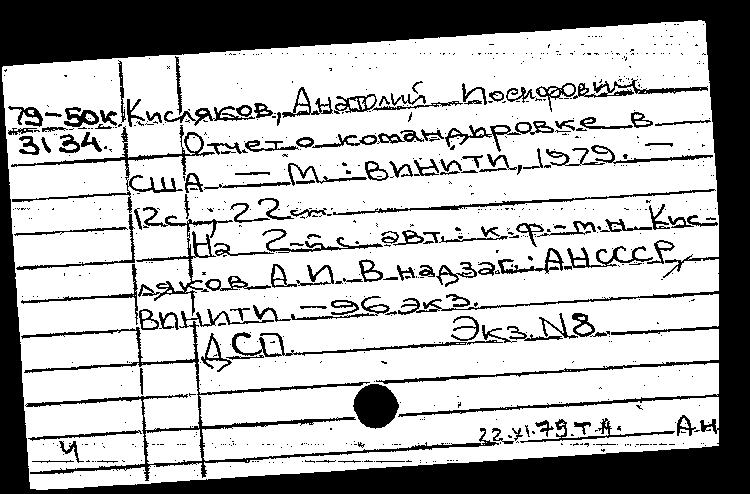 79-50к Кисляков, Анатолий Иосифович
3134. Отчет о командировке в
США. — М.: ВИНИТИ, 1979. —
12с.; 22см.
На 2-й с. авт.: к.ф.-м.н. Кис-
ляков А.И. В надзаг.: АН СССР,
ВИНИТИ. — 96 экз.
ДСП. Экз. N8
22.XI.79.Т.А. АН
Ч